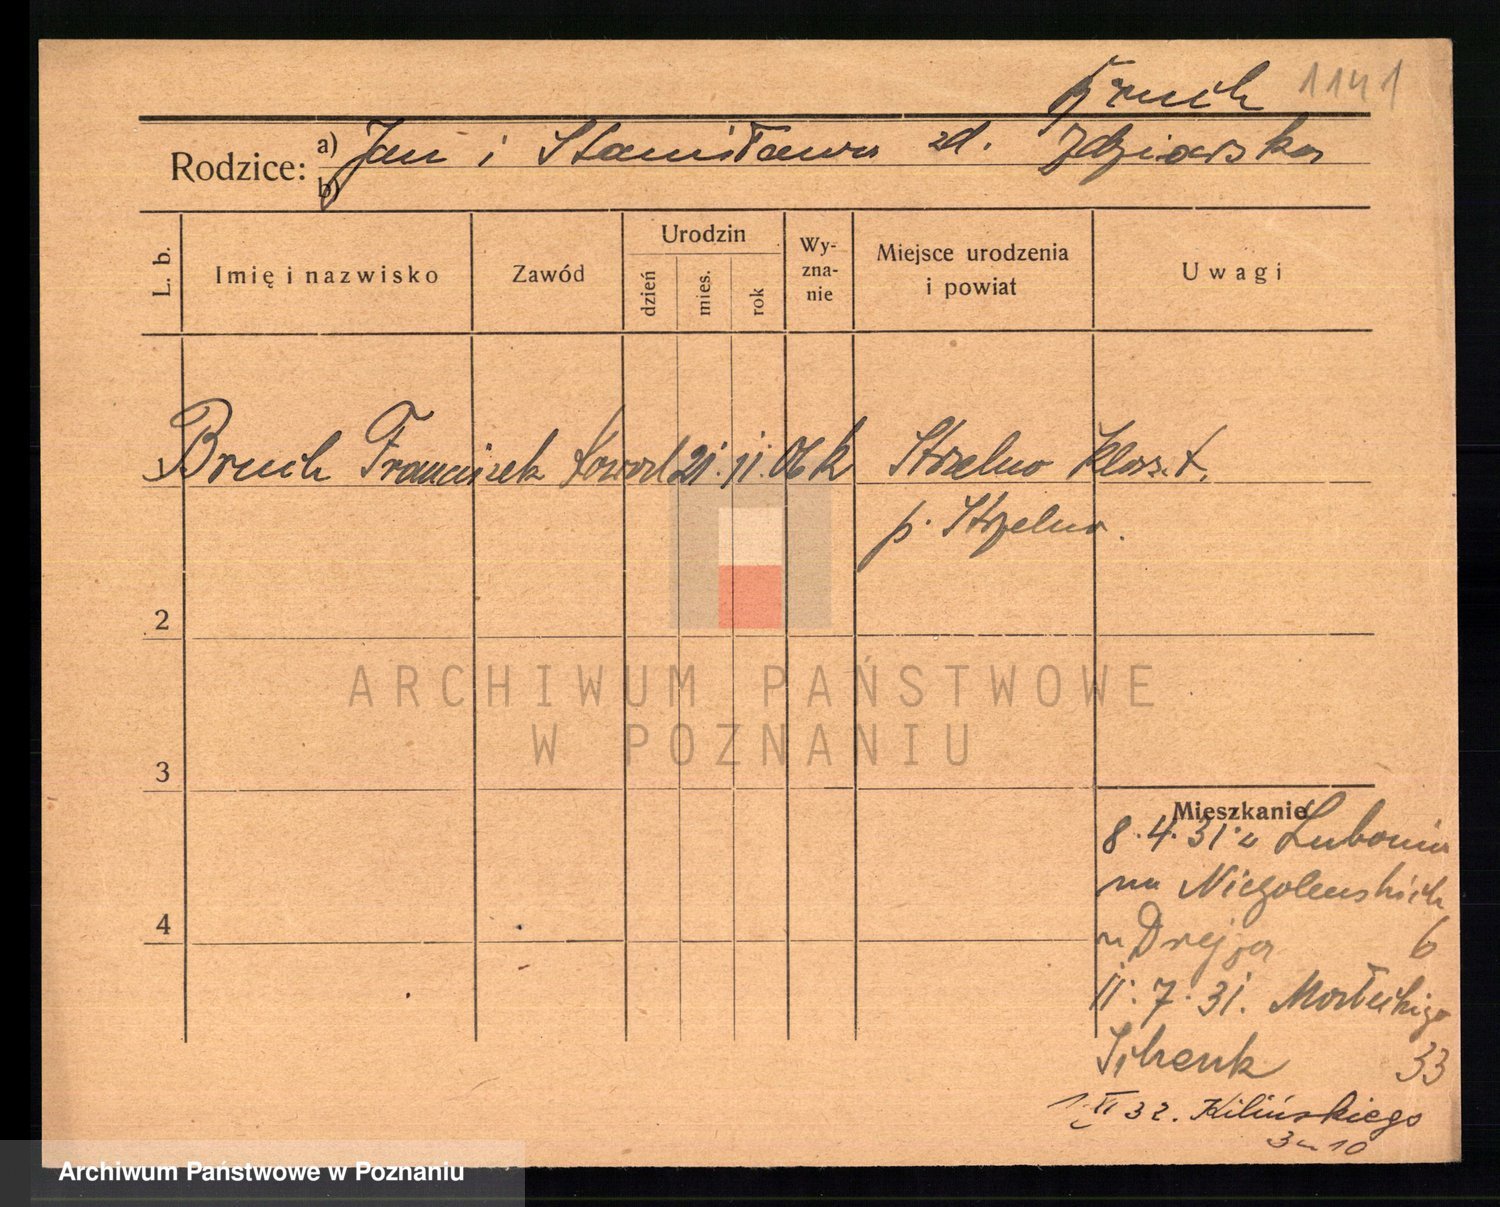 Bruch 1141
Rodzice: a) Jan i Stanisława zd. Zdziarska
b)
L. b. Imię i nazwisko Zawód Urodzin dzień mies. rok Wy-zna-nie Miejsce urodzenia i powiat Uwagi
Bruch Franciszek 21. 11. 06 k Strzelno Klaszt.
p. Strzelno.
2
ARCHIWUM PAŃSTWOWE
W POZNANIU
3
Mieszkanie
8.4.31. z Lubonia
na Niegolewskich
6
4
11.7.31.
33
1 XI 32. Kilińskiego
3 m 10
Archiwum Państwowe w Poznaniu